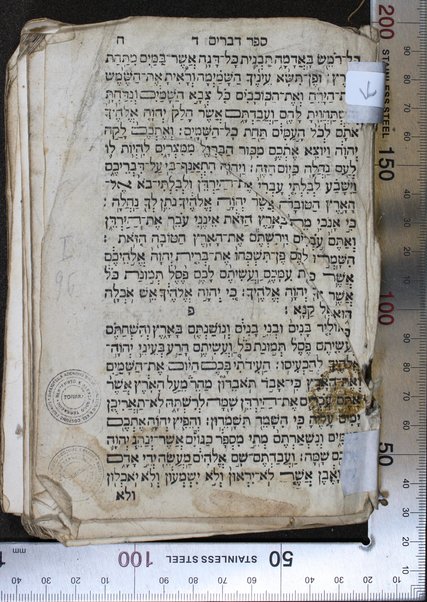 ספר דברים ד ה
כל־רמש באדמה תבנית כל־דגה אשר־במים מתחת
לארץ׃ ופן־תשא עיניך השמימה וראית את־השמש
ואת־הירח ואת־הכוכבים כל צבא השמים ונדחת
והשתחוית להם ועבדתם אשר חלק יהוה אלהיך
אתם לכל העמים תחת כל־השמים׃ ואתכם לקח
יהוה ויוצא אתכם מכור הברזל ממצרים להיות לו
לעם נחלה כיום הזה׃ ויהוה התאנף־בי על־דבריכם
וישבע לבלתי עברי את־הירדן ולבלתי־בא אל־
הארץ הטובה אשר יהוה אלהיך נתן לך נחלה׃
כי אנכי מת בארץ הזאת אינני עבר את־הירדן
ואתם עברים וירשתם את־הארץ הטובה הזאת׃
השמרו לכם פן־תשכחו את־ברית יהוה אלהיכם
אשר כרת עמכם ועשיתם לכם פסל תמונת כל
אשר צוך יהוה אלהיך׃ כי יהוה אלהיך אש אכלה
הוא אל קנא׃ פ
כי־תוליד בנים ובני בנים ונושנתם בארץ והשחתם
ועשיתם פסל תמונת כל ועשיתם הרע בעיני יהוה־
אלהיך להכעיסו׃ העידתי בכם היום את־השמים
ואת־הארץ כי־אבד תאבדון מהר מעל הארץ אשר
אתם עברים את־הירדן שמה לרשתה לא־תאריכן
ימים עליה כי השמד תשמדון׃ והפיץ יהוה אתכם
בעמים ונשארתם מתי מספר בגוים אשר ינהג יהוה
אתכם שמה׃ ועבדתם־שם אלהים מעשה ידי אדם
עץ ואבן אשר לא־יראון ולא ישמעון ולא יאכלון
ולא
200
STAINLESS STEEL
150
100
50
mm
100
STAINLESS STEEL
50